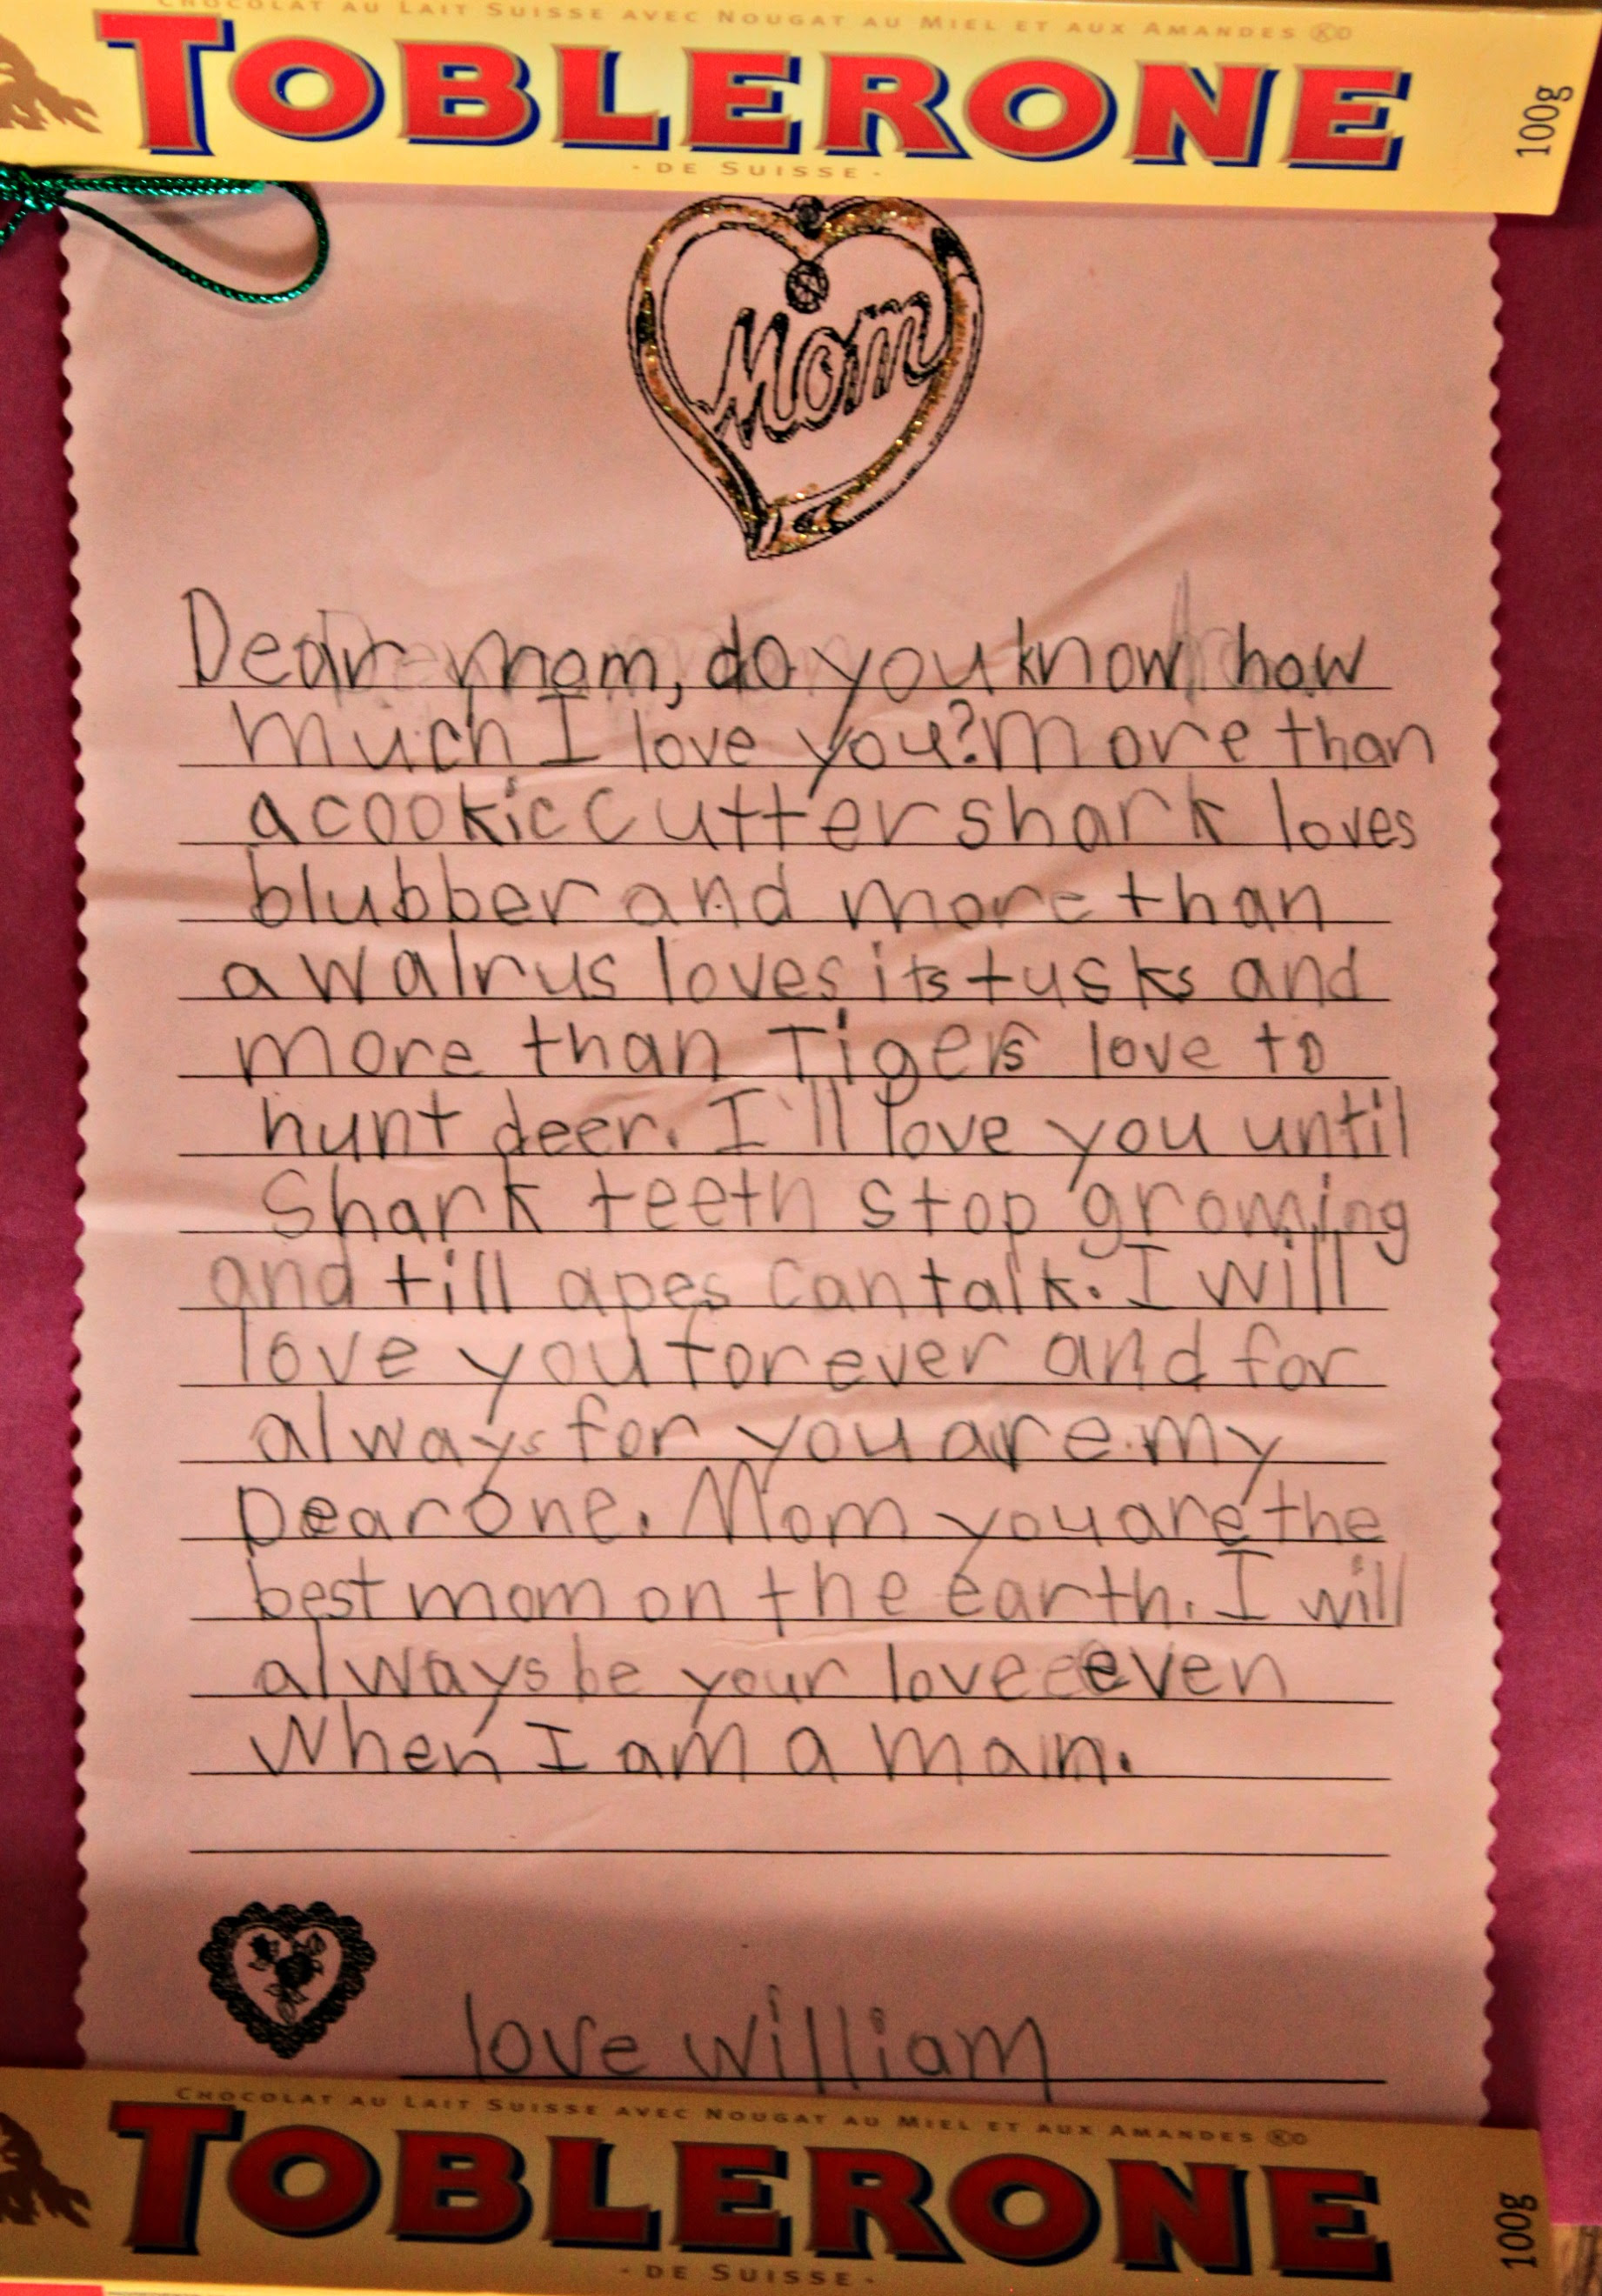 CHOCOLAT AU LAIT SUISSE AVEC NOUGAT AU MIEL ET AUX AMANDES KD
TOBLERONE
100g
- DE SUISSE -
Mom
Dear mom, do you know how
much I love you? More than
a cookie cutter shark loves
blubber and more than
a walrus loves its tusks and
more than Tigers love to
hunt deer. I'll love you until
Shark teeth stop growing
and till apes can talk. I will
love you forever and for
always for you are my
Dear one. Mom you are the
best mom on the earth. I will
always be your love even
when I am a man.
love william
CHOCOLAT AU LAIT SUISSE AVEC NOUGAT AU MIEL ET AUX AMANDES KD
TOBLERONE
100g
- DE SUISSE -